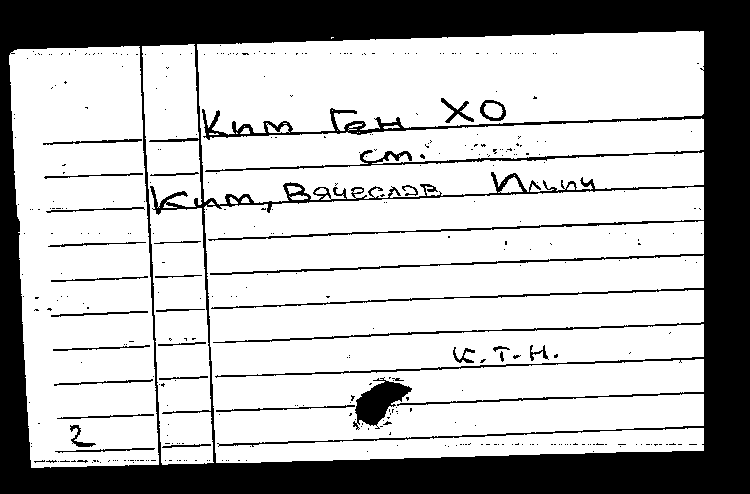 Ким Ген ХО
см.
Ким, Вячеслав Ильич
К.Т.Н.
2